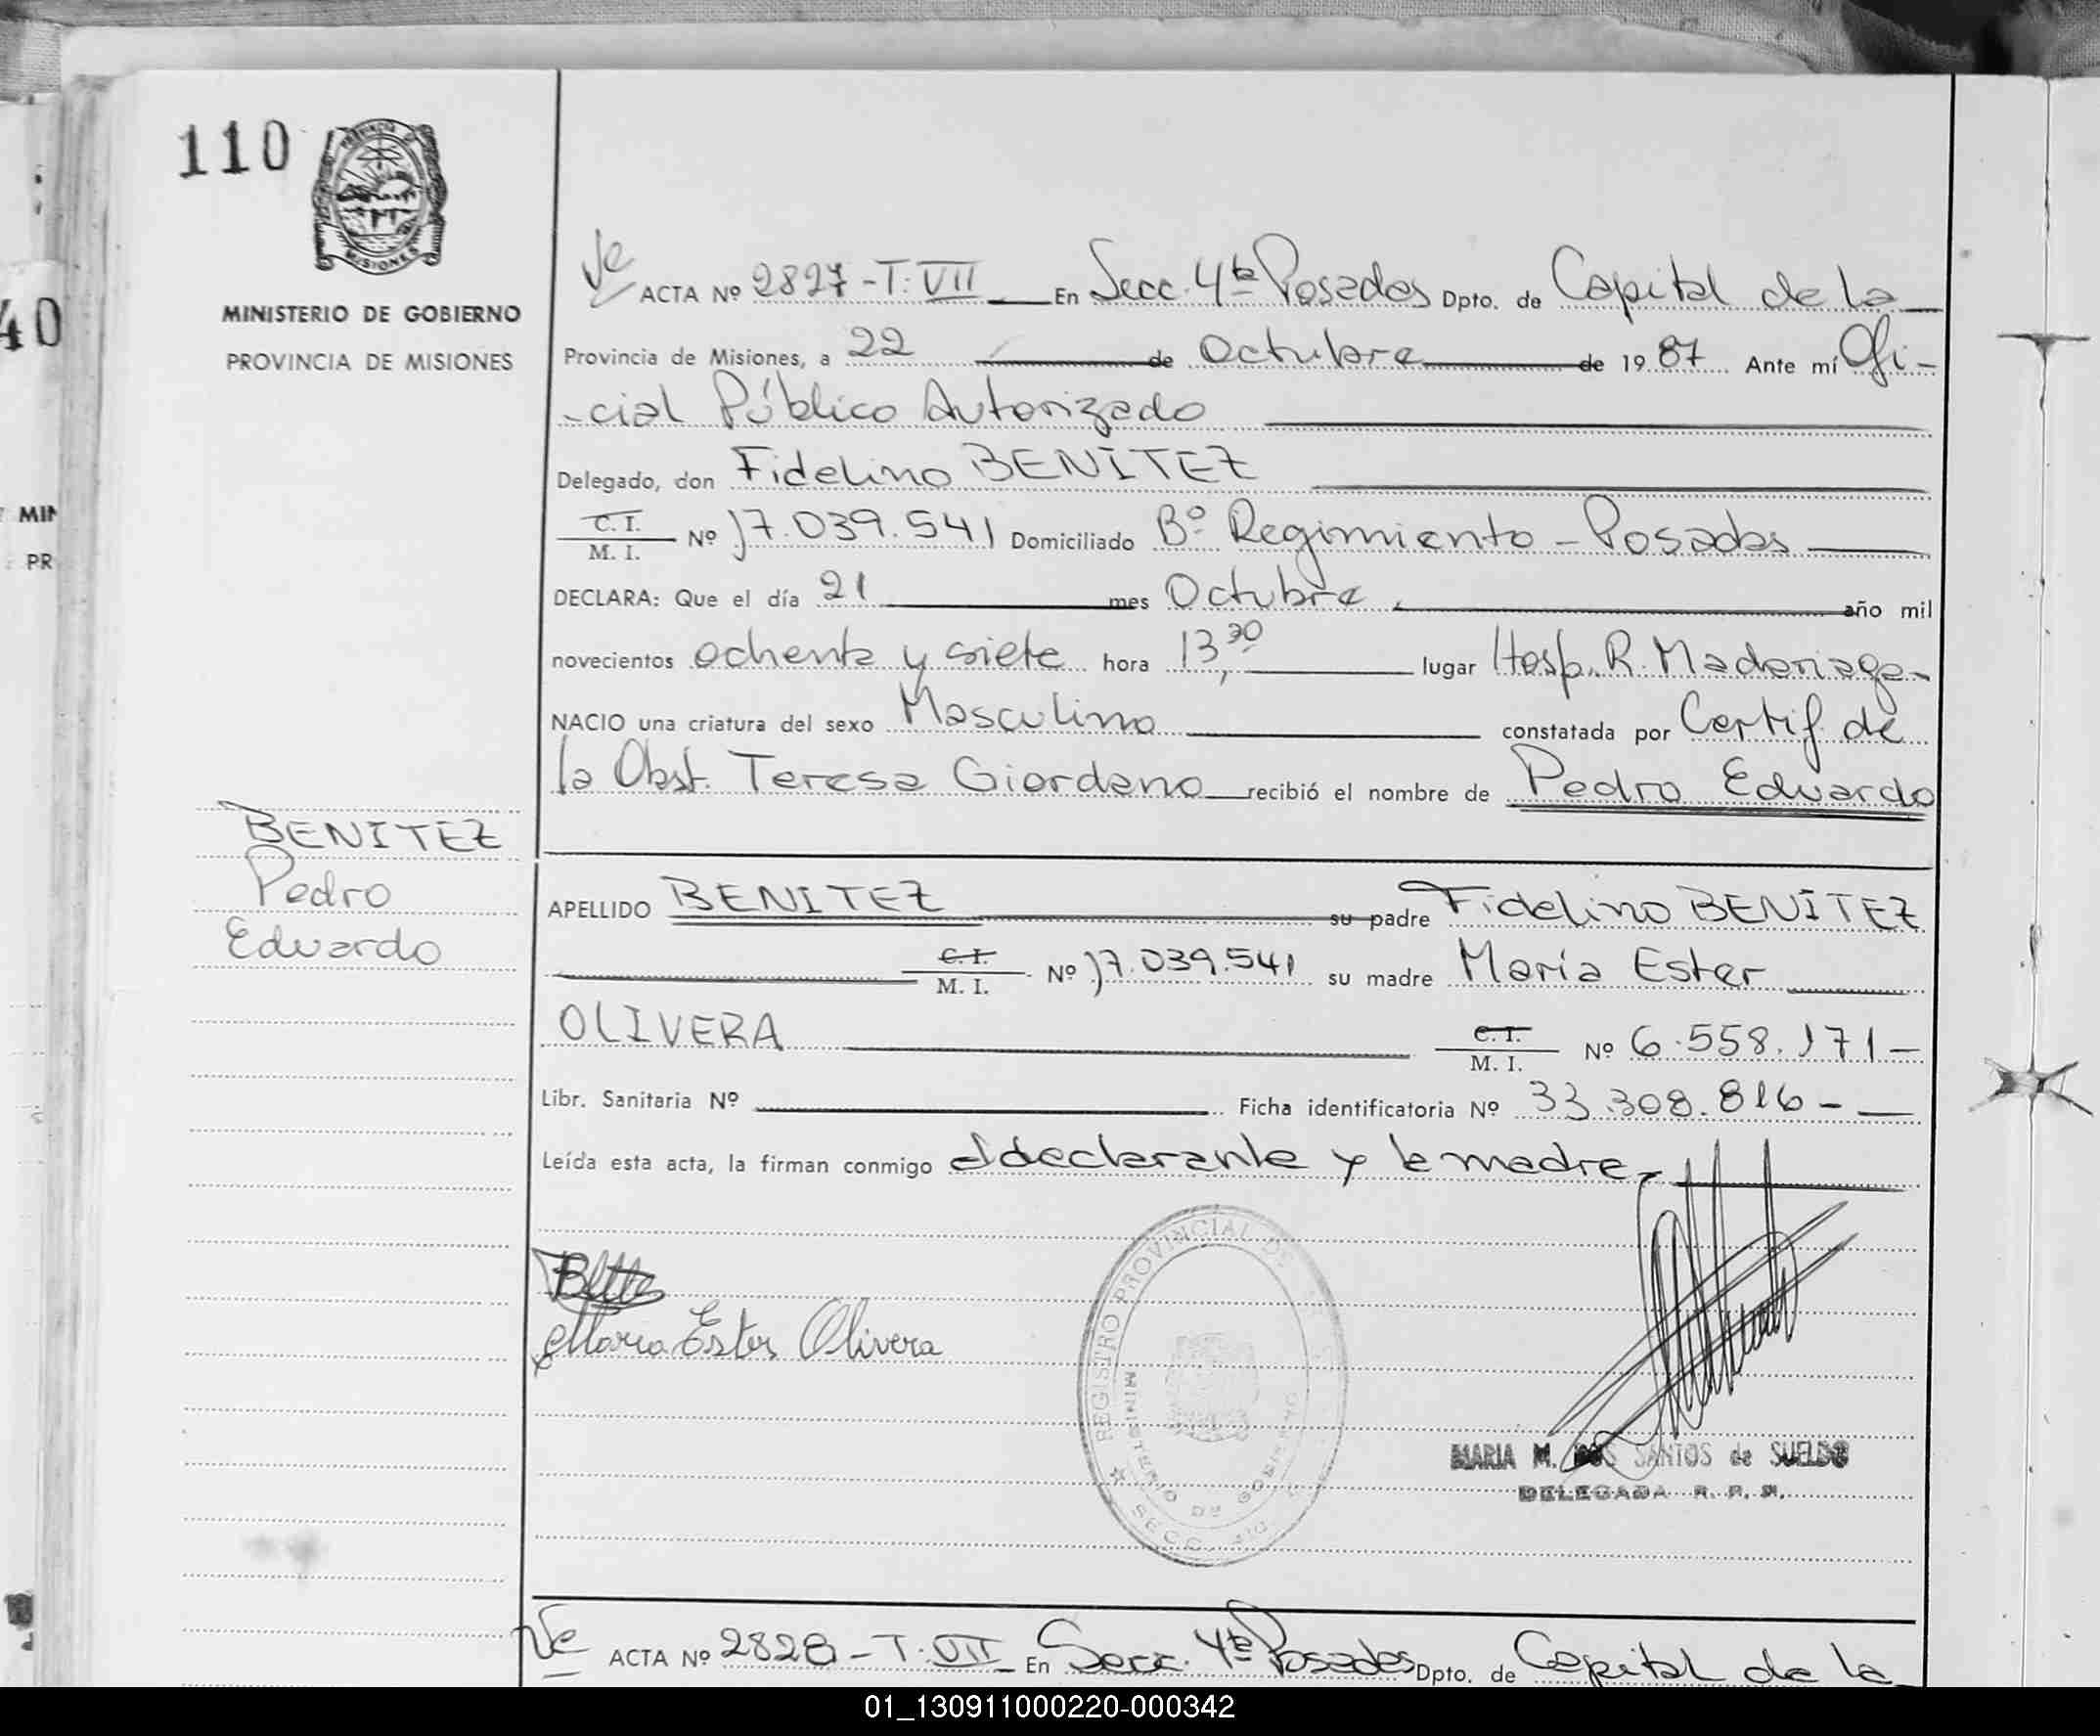 110
MISIONES
MINISTERIO DE GOBIERNO
PROVINCIA DE MISIONES
40
MIN
PR
BENITEZ
Pedro
Eduardo
Ve ACTA Nº 2827-T:VII En Secc. 4ta Posadas Dpto. de Capital de la
Provincia de Misiones, a 22 de Octubre de 1987 Ante mí Ofi-
-cial Público Autorizado
Delegado, don Fidelino BENÍTEZ
C. I.
M. I. Nº 17.039.541 Domiciliado Bº Regimiento - Posadas
DECLARA: Que el día 21 mes Octubre año mil
novecientos ochenta y siete hora 13,30 lugar Hosp. R. Madariaga-
NACIO una criatura del sexo Masculino constatada por Certif. de
la Obst. Teresa Giordano recibió el nombre de Pedro Eduardo
APELLIDO BENITEZ su padre Fidelino BENÍTEZ
C. I.
M. I. Nº 17.039.541 su madre María Ester
OLIVERA C. I.
M. I. Nº 6.558.171-
Libr. Sanitaria Nº Ficha identificatoria Nº 33.308.816-
Leída esta acta, la firman conmigo el declarante y la madre,-
Maria Ester Olivera
REGISTRO PROVINCIAL DE
MINISTERIO DE GOBIERNO
SECC. 4ta
MARIA M. DOS SANTOS de SUELDO
DELEGADA R. P. P.
Ve ACTA Nº 2828-T:VII En Secc. 4ta Posadas Dpto. de Capital de la
01_130911000220-000342